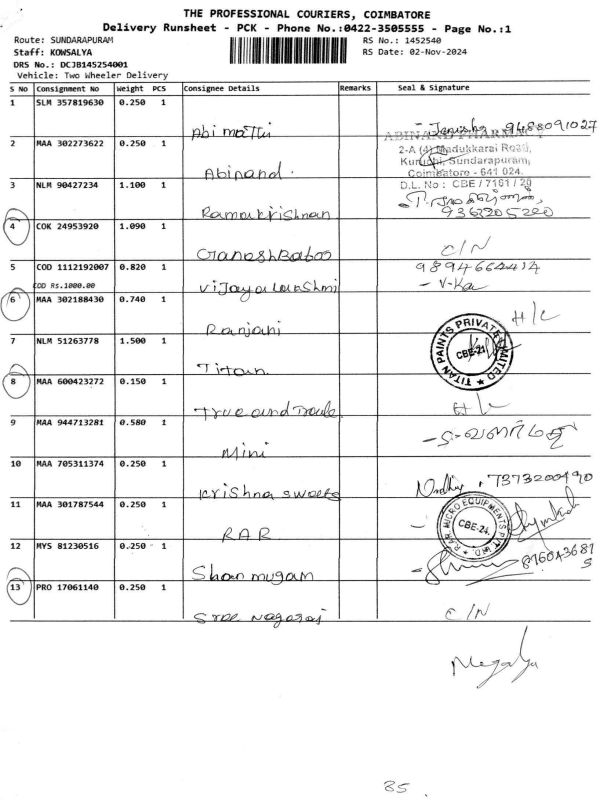 THE PROFESSIONAL COURIERS, COIMBATORE
Delivery Runsheet - PCK - Phone No.:0422-3505555 - Page No.:1
Route: SUNDARAPURAM
RS No.: 1452540
Staff: KOWSALYA
RS Date: 02-Nov-2024
DRS No.: DCJB145254001
Vehicle: Two Wheeler Delivery
S No Consignment No Weight PCS Consignee Details Remarks Seal & Signature
1 SLM 357819630 0.250 1
Abi mathi 9488091027
ABINAND PHARMACY
2 MAA 302273622 0.250 1
2-A (4) Madukkarai Road,
Kurichi, Sundarapuram,
Abinand. Coimbatore - 641 024.
3 NLM 90427234 1.100 1 D.L. No : CBE / 7161 / 20
Ramakrishnan
4 COK 24953920 1.090 1
GaneshBaboo C/N
5 COD 1112192007 0.820 1 9894664414
COD Rs.1000.00 Vijayalakshmi - V-Ka
6 MAA 302188430 0.740 1
Ranjani H/L
7 NLM 51263778 1.500 1
TITAN PAINTS PRIVATE LIMITED
CBE-21
Titan.
8 MAA 600423272 0.150 1
True and Trade H/L
9 MAA 944713281 0.580 1
Mini
10 MAA 705311374 0.250 1
Krishna sweets 7373200490
11 MAA 301787544 0.250 1
RAR MICRO EQUIPMENTS PVT. LTD.
CBE-24.
RAR
12 MYS 81230516 0.250 1
Shanmugam
13 PRO 17061140 0.250 1
Sree Nagaraj C/N
85